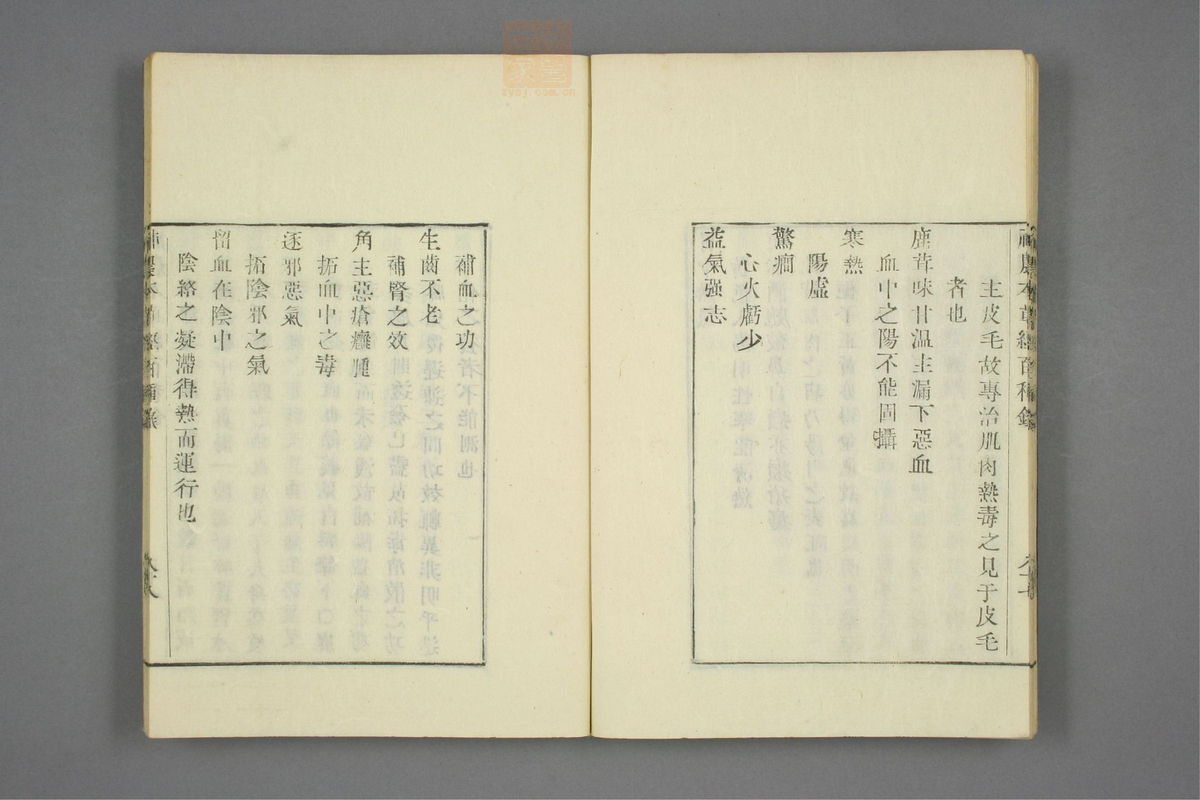 主皮毛故專治肌肉熱毒之見于皮毛
者也
鹿茸味甘溫主漏下惡血
血中之陽不能固攝
寒熱
陽虛
驚癇
心火虧少
益氣强志
補血之功
生齒不老
補腎之效
角主惡瘡癰腫
拓血中之毒
逐邪惡氣
拓陰邪之氣
留血在陰中
陰絡之凝滯得熱而運行也
zysj.com.cn